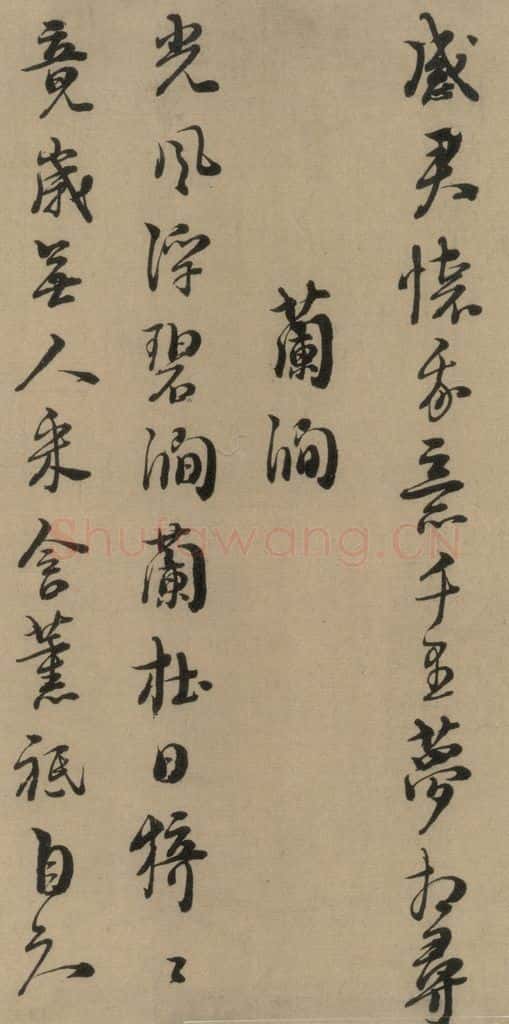 感君懷我意千里夢相尋
蘭澗
光風浮碧澗蘭杜日猗〻
竟歲無人采含薰祗自知
Shufawang.CN